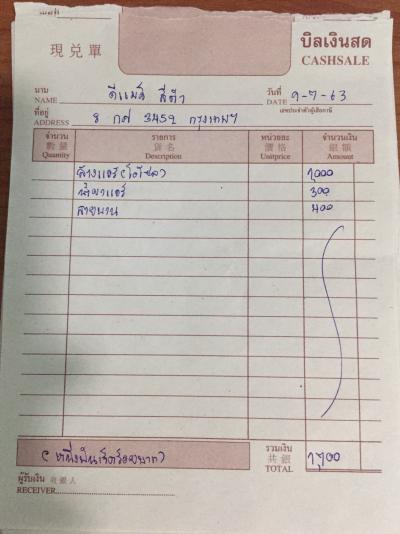 現兑單
บิลเงินสด
CASHSALE
นาม
NAME
ดีแมค สีคิ้ว
วันที่
DATE
9-7-63
เลขประจำตัวผู้เสียภาษี
ที่อยู่
ADDRESS
8 กต 3459 กรุงเทพฯ
จำนวน 數量 Quantity
รายการ 貨名 Description
หน่วยละ 價格 Unitprice
จำนวนเงิน 銀額 Amount
ล้างแอร์ 1,000
น้ำยาแอร์ 300
สายพาน 400
(หนึ่งพันเจ็ดร้อยบาท)
รวมเงิน
共銀
TOTAL
1,700
ผู้รับเงิน 收銀人
RECEIVER